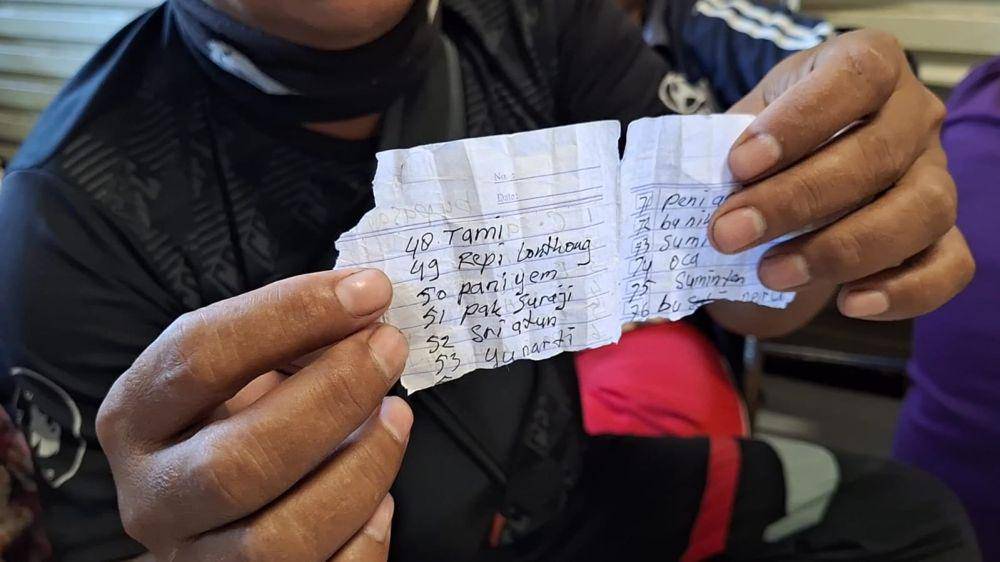 No. :
Date :
48 Tami
49 Repi Lonthong
50 paniyem
51 pak Suraji
52 Sri atun
53 Yunarti
71 peni
72
73 Sumi
74 oca
75 Suminten
76 bu